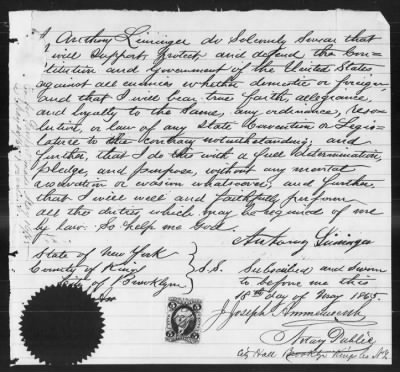 I Anthony Lininger do Solemnly Swear that
I will Support, Protect and defend the Con-
stitution and Government of the United States
against all enemies, whether domestic or foreign,
and that I will bear true faith, allegiance,
and loyalty to the Same, any ordinance, reso-
lution, or law of any State Convention or Legis-
lature to the contrary notwithstanding; and
further, that I do this with a full determination,
pledge, and purpose, without any mental
reservation or evasion whatsoever; and further,
that I will well and faithfully perform
all the duties which may be required of me
by law. So help me God.
Anthony Lininger
State of New York
County of Kings S.S.
of Brooklyn
Subscribed and Sworn
to before me this
18th day of May 1865.
J. Joseph
Notary Public
City Hall Brooklyn Kings Co N.Y.